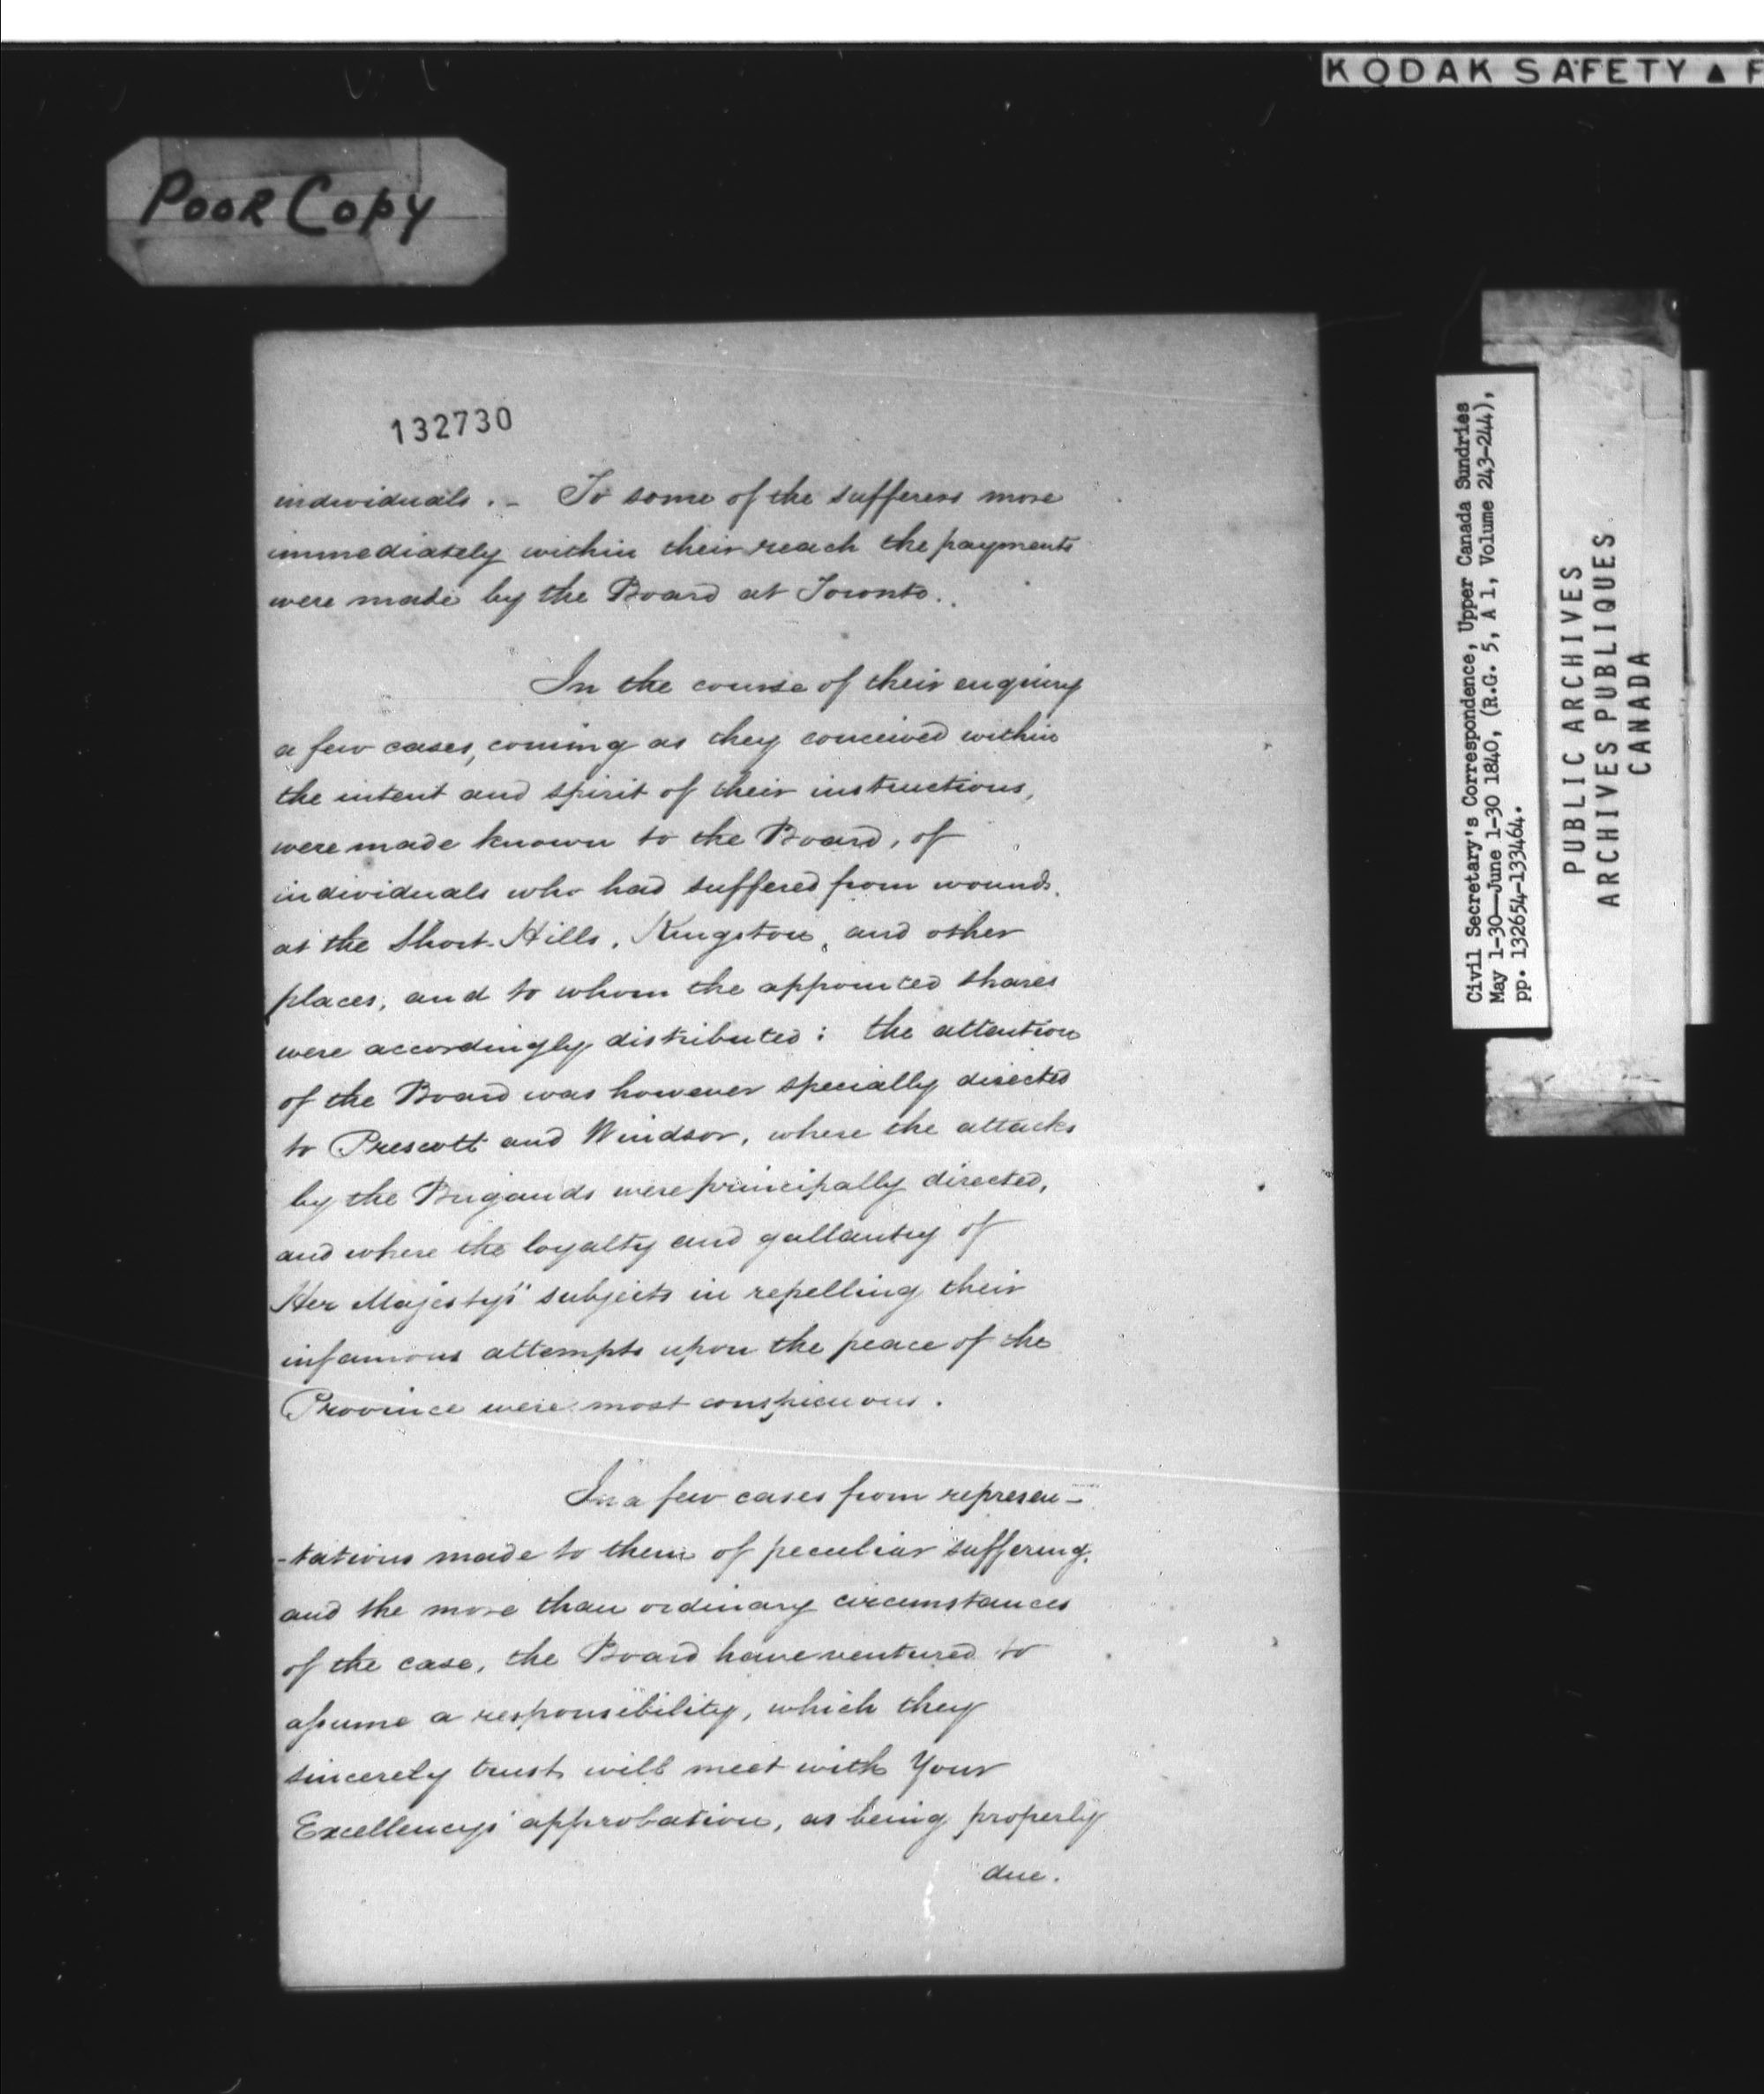 KODAK SAFETY ▲ F
Poor Copy
132730
individuals. - To some of the sufferers more
immediately within their reach the payments
were made by the Board at Toronto.
In the course of their enquiry
a few cases, coming as they conceived within
the intent and spirit of their instructions,
were made known to the Board, of
individuals who had suffered from wounds
at the Short Hills, Kingston, and other
places, and to whom the appointed shares
were accordingly distributed: the attention
of the Board was however specially directed
to Prescott and Windsor, where the attacks
by the Brigands were principally directed,
and where the loyalty and gallantry of
Her Majestys' subjects in repelling their
infamous attempts upon the peace of the
Province were most conspicuous.
In a few cases from represen-
-tations made to them of peculiar suffering,
and the more than ordinary circumstances
of the case, the Board have ventured to
assume a responsibility, which they
sincerely trust will meet with Your
Excellencys' approbation, as being properly
due.
Civil Secretary's Correspondence, Upper Canada Sundries
May 1-30—June 1-30 1840, (R.G. 5, A 1, Volume 243-244),
pp. 132654-133464.
PUBLIC ARCHIVES
ARCHIVES PUBLIQUES
CANADA